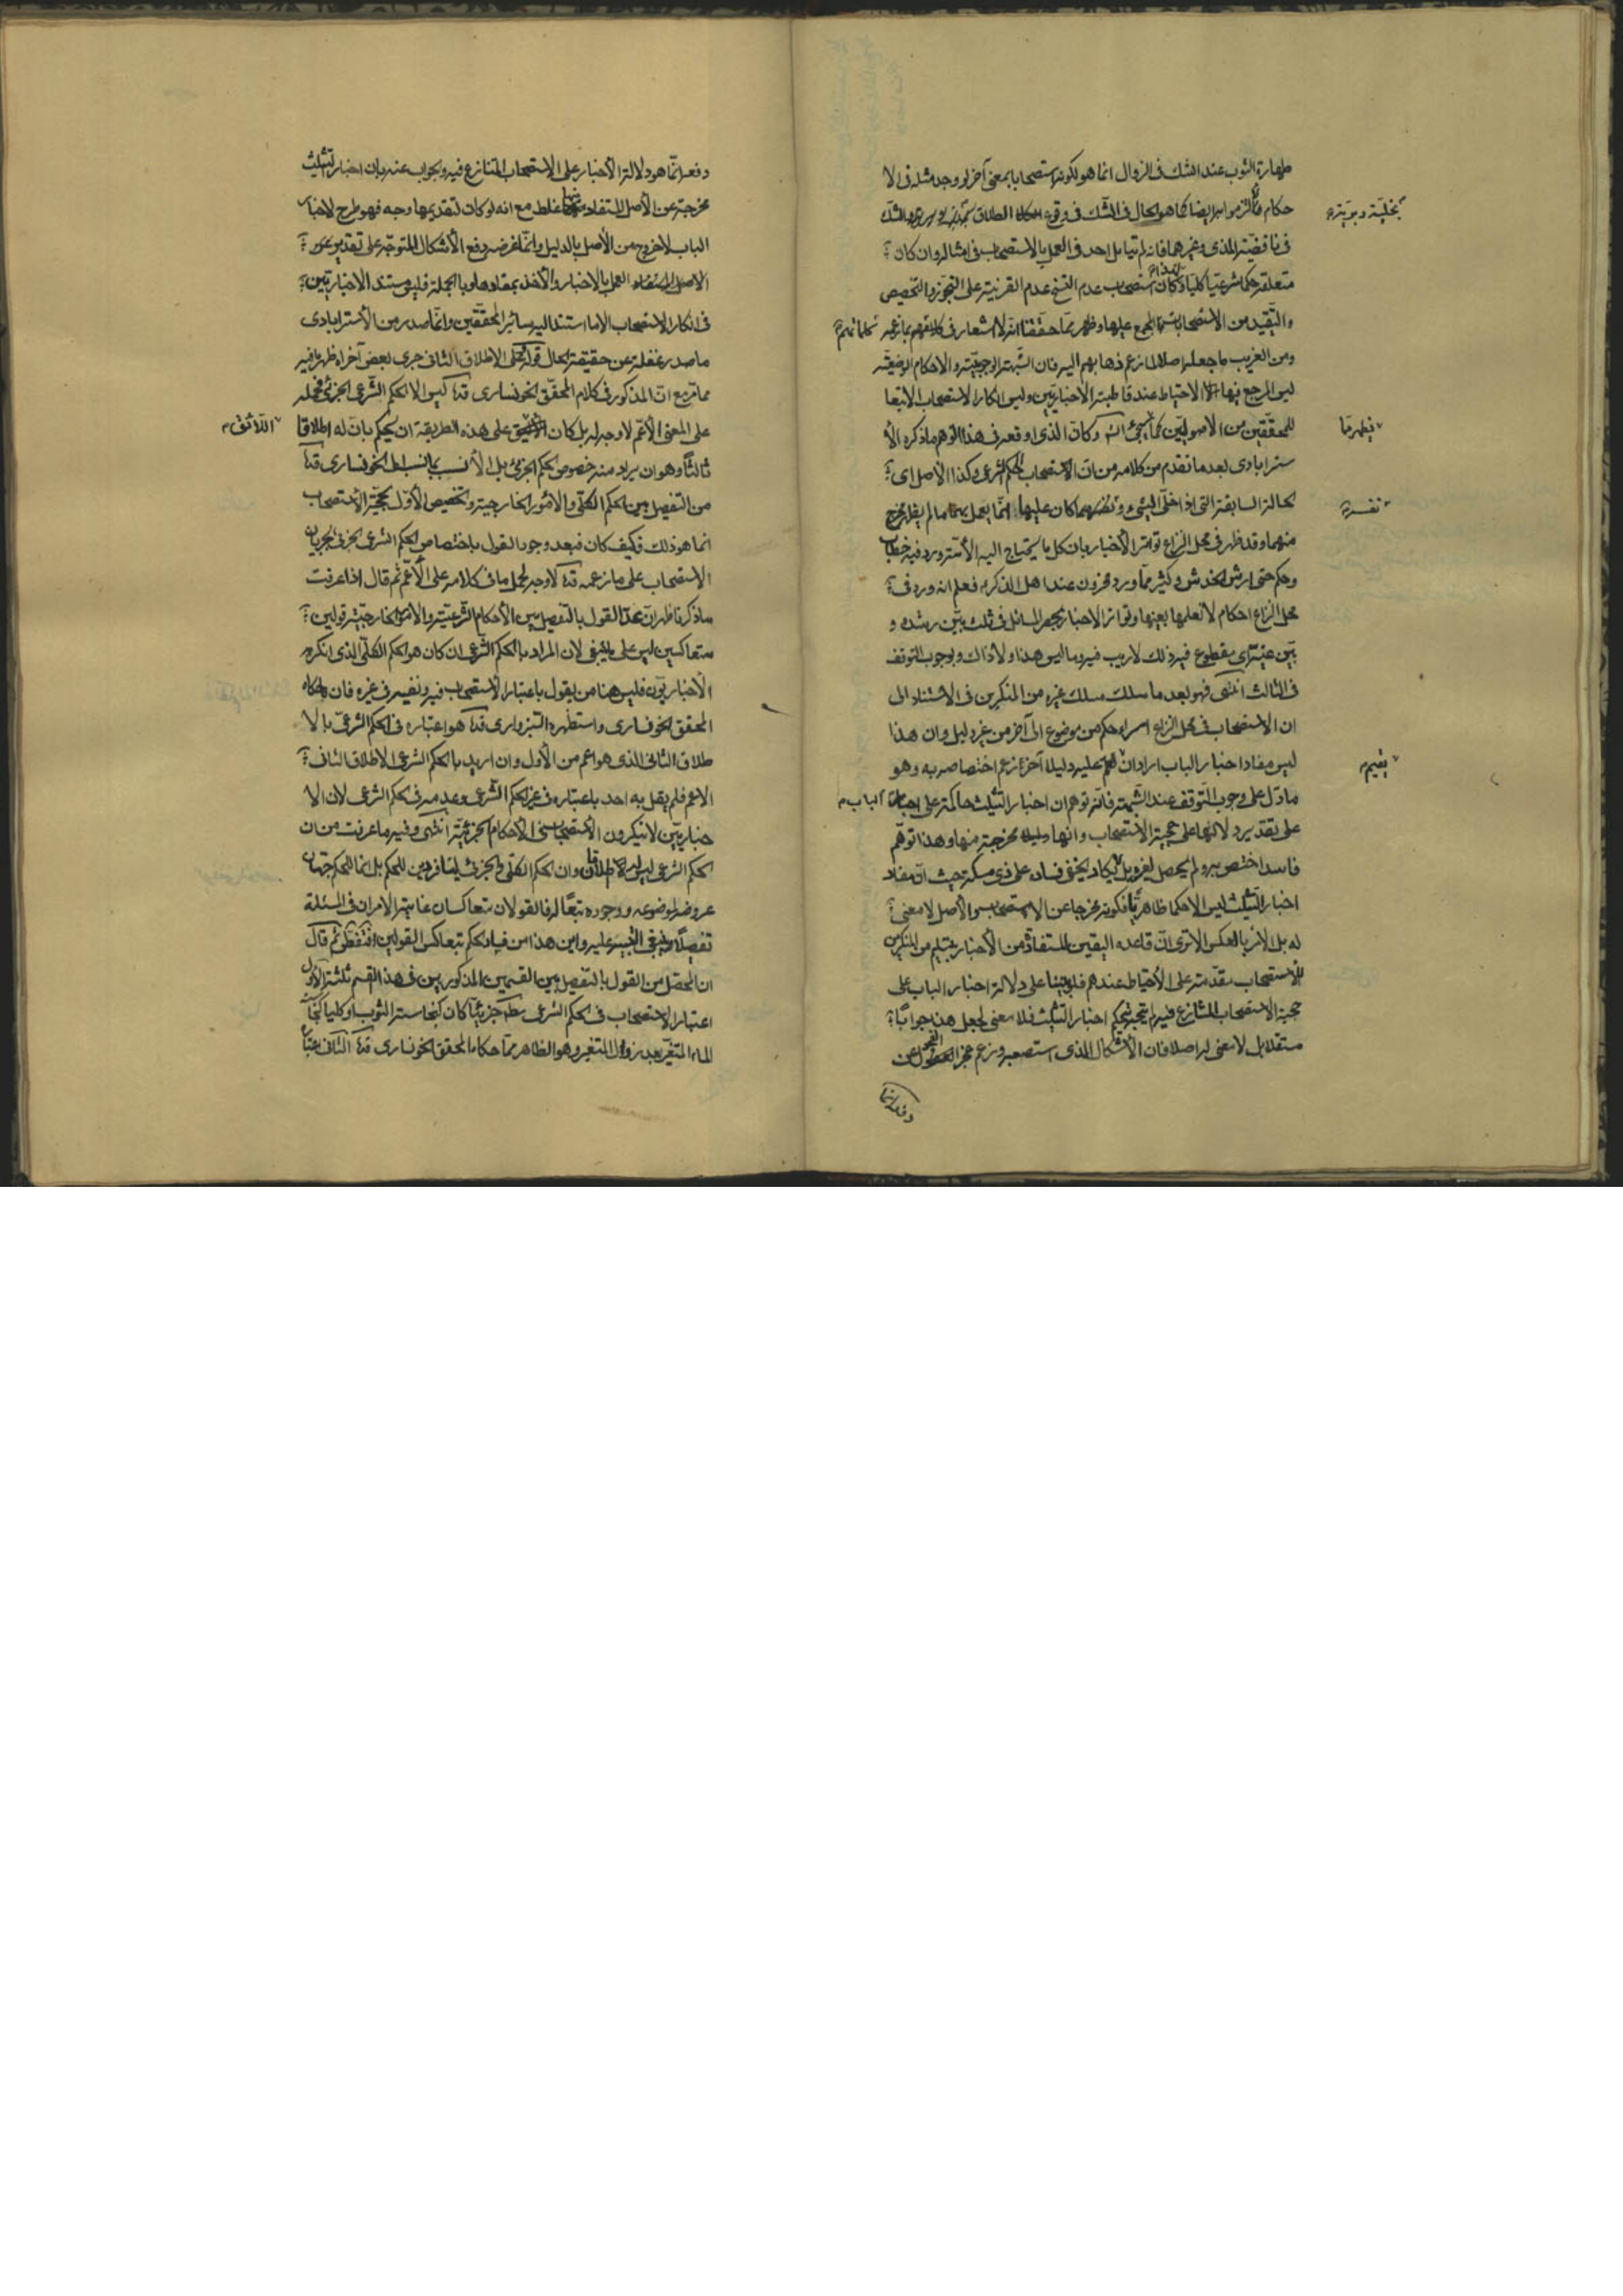 طهارة الثوب عند الشك في الزوال انما هو لكونه استصحابا بمعنى آخر لو وجد مثله في الا
حكام فالتزموا به ايضا كما هو الحال في الشك في وقوع الطلاق والشك
في ناقضية المذي وغيرهما فانه لم يتأمل احد في العمل بالاستصحاب في امثاله وان كان
متعلقه حكما شرعيا كليا استصحاب عدم النسخ عدم القرينة على التجوز والتخصيص
والتقييد من الاستصحاب المجمع عليها وظهر مما حققنا انه لا اشعار في
ومن الغريب ما جعله اصلا لما زعم ذهابهم اليه فان الشبهة الوجوبية والاحكام الوضعية
ليس المرجع فيها الا الاحتياط عند قاطبة الاخباريين وليس انكار الاستصحاب الا تبعا
للمحققين من الاصوليين كما سيجئ وكان الذي اوقعه في هذا الوهم ما ذكره الأ
سترابادي بعد ما تقدم من كلامه من ان الاستصحاب الحكم الشرعي وكذا الاصل اي
لحالة السابقة التي اذا خلى الشيء ونفسه كان عليها انما يعمل بهما ما لم يظهر مخرج
منهما وقد ظهر في محل النزاع تواتر الأخبار بان كل ما يحتاج اليه الأمة ورد فيه خطاب
وحكم حتى ارش الخدش وكثير مما ورد مخزون عند اهل الذكر فعلم انه ورد في
محل النزاع احكام لا نعلمها بعينها وتواتر الاخبار بحصر المسائل في ثلث بين رشده و
بين غيه اي مقطوع فيه ذلك لا ريب فيه وما ليس هذا ولا ذاك وبوجوب التوقف
في الثالث انتهى فهو بعد ما سلك مسلك غيره من المنكرين في الاستناد الى
ان الاستصحاب في محل النزاع اسراء حكم من موضوع الى آخر من غير دليل وان هذا
ليس مفاد اخبار الباب اراد ان عليه دليلا آخر زعم اختصاصه به وهو
ما دل على وجوب التوقف عند الشبهة فانه توهم ان اخبار التثليث حاكمة على اخبار الباب
على تقدير دلالتها على حجية الأستصحاب وانها مخرجة منها وهذا توهم
فاسد اختص به ولم يحصل لغيره بل لا يكاد يخفى فساده على ذي مسكة حيث ان مفاد
اخبار التثليث ليس الا حكما ظاهريا فكونه مخرجا عن الاستصحاب والأصل لا معنى
له بل الامر بالعكس الا ترى ان قاعدة اليقين المستفاد من الأخبار بتسليم من المنكرين
للاستصحاب مقدمة على الأحتياط عندهم فلو بنينا على دلالة اخبار الباب على
حجية الاستصحاب المتنازع فيه لم يتجه تحكيم اخبار التثليث فلا معنى لجعل هذا جوابا
مستقلا بل لا معنى له اصلا فان الأشكال الذي استصعبه وزعم عجز الفحول عن
دفعه انما
دفعه انما هو دلالة الأخبار على الاستصحاب المتنازع فيه والجواب عنه بان اخبار التثليث
مخرجة عن الأصل المستفاد منها غلط مع انه لو كان لتقديمها وجه فهو طرح لاخبار
الباب لا خروج من الأصل بالدليل وانما غرضه دفع الأشكال المتوجه على تقدير
الاصل العمل بالاخبار والأخذ بمفادها وبالجملة فليس مستند الاخباريين
في انكار الاستصحاب الا ما استند اليه سائر المحققين وانما صدر من الأسترابادي
ما صدر غفلة عن حقيقة الحال قوله على الاطلاق الثاني جرى بعض آخر اه ظهر ما فيه
مما مر مع ان المذكور في كلام المحقق الخونساري قده ليس الا الحكم الشرعي الجزئي فحمله
على المعنى الأعم لا وجه له بل كان اللائق على هذه الطريقة ان يحكم بان له اطلاقا
ثالثا وهو ان يراد منه خصوص الحكم الجزئي بل الأنسب بما نسب الى الخونساري قده
من التفصيل بين الحكم الكلي والأمور الخارجية وتخصيص الأول بحجية الأستصحاب
انما هو ذلك فكيف كان فبعد وجود القول باختصاص الحكم الشرعي الجزئي بجريان
الاستصحاب على ما زعمه قده لا وجه لحمل ما في كلامه على الأعم ثم قال اذا عرفت
ما ذكرنا ظهر ان عد القول بالتفصيل بين الأحكام الشرعية والامور الخارجية قولين
متعاكسين ليس على ما ينبغي لان المراد بالحكم الشرعي ان كان هو الحكم الكلي الذي انكره
الأخباريون فليس هنا من يقول باعتبار الأستصحاب فيه ونفيه في غيره فان ما حكاه
المحقق الخونساري واستظهره السبزواري قده هو اعتباره في الحكم الشرعي بالا
طلاق الثاني الذي هو اعم من الأول وان اريد بالحكم الشرعي الاطلاق الثاني
الاعم فلم يقل به احد باعتباره في غير الحكم الشرعي وعدمه في الحكم الشرعي لان الا
خباريين لا ينكرون الأستصحاب في الأحكام الجزئية انتهى وفيه ما عرفت من ان
الحكم الشرعي ليس له اطلاقان وان الحكم الكلي والجزئي ليسا فردين للحكم بل انما للحكم جهتان
عروضه لموضوعه ووجوده تبعا له فالقولان متعاكسان غاية الامر ان في المسئلة
تفصيلا ينبغي التنبيه عليه واين هذا من فساد الحكم بتعاكس القولين فتفطن ثم قال
ان المحصل من القول بالتفصيل بين القسمين المذكورين في هذا القسم ثلثة الأول
اعتبار الاستصحاب في الحكم الشرعي مطلقا جزئيا كان كنجاسة الثوب او كليا كنجاسة
الماء المتغير بعد زوال التغير وهو الظاهر مما حكاه المحقق الخونساري قده الثاني اعتبار